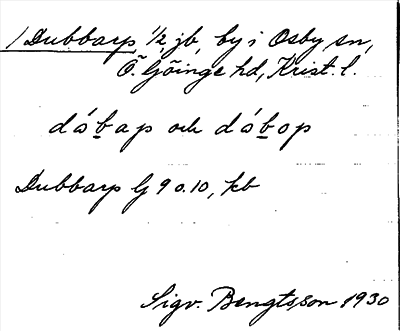 /Dubbarp ½, jb, by i Osby sn,
Ö. Göinge hd, Krist. l.
dábap och dábop
Dubbarp G 9 o. 10, kb
Sigv. Bengtsson 1930